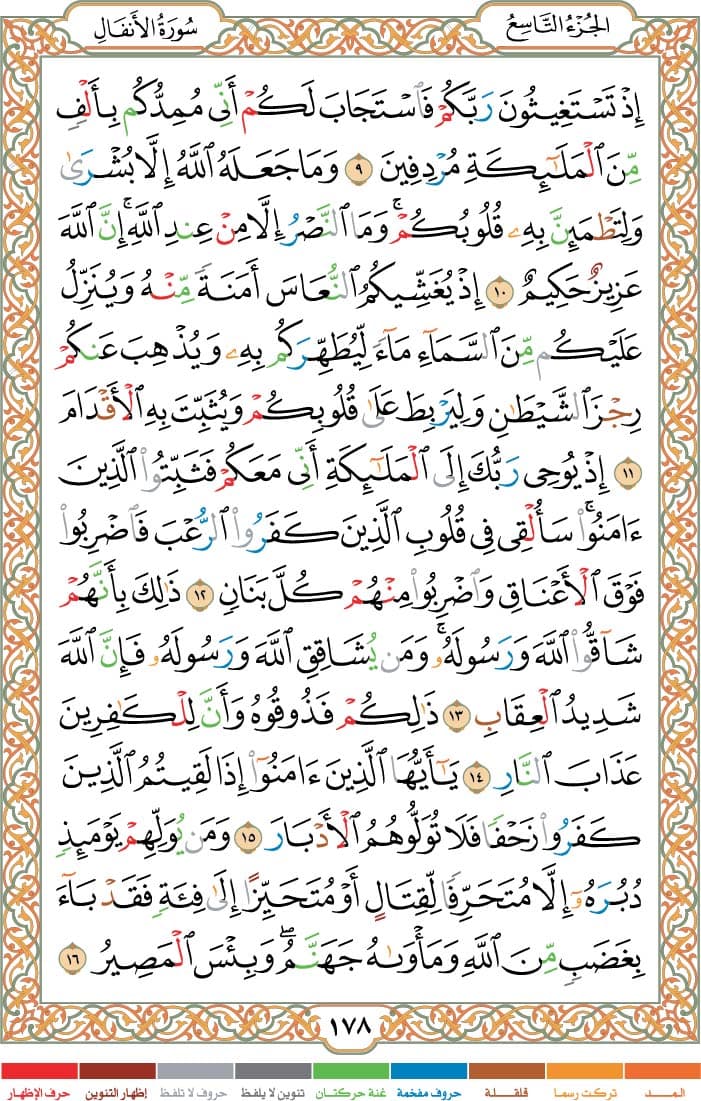 الجُزْءُ التَّاسِعُ
سُورَةُ الأَنفَالِ
إِذْ تَسْتَغِيثُونَ رَبَّكُمْ فَٱسْتَجَابَ لَكُمْ أَنِّى مُمِدُّكُم بِأَلْفٍ
مِّنَ ٱلْمَلَـٰٓئِكَةِ مُرْدِفِينَ ٩ وَمَا جَعَلَهُ ٱللَّهُ إِلَّا بُشْرَىٰ
وَلِتَطْمَئِنَّ بِهِۦ قُلُوبُكُمْ ۚ وَمَا ٱلنَّصْرُ إِلَّا مِنْ عِندِ ٱللَّهِ ۚ إِنَّ ٱللَّهَ
عَزِيزٌ حَكِيمٌ ١٠ إِذْ يُغَشِّيكُمُ ٱلنُّعَاسَ أَمَنَةً مِّنْهُ وَيُنَزِّلُ
عَلَيْكُم مِّنَ ٱلسَّمَآءِ مَآءً لِّيُطَهِّرَكُم بِهِۦ وَيُذْهِبَ عَنكُمْ
رِجْزَ ٱلشَّيْطَـٰنِ وَلِيَرْبِطَ عَلَىٰ قُلُوبِكُمْ وَيُثَبِّتَ بِهِ ٱلْأَقْدَامَ
١١ إِذْ يُوحِى رَبُّكَ إِلَى ٱلْمَلَـٰٓئِكَةِ أَنِّى مَعَكُمْ فَثَبِّتُوا۟ ٱلَّذِينَ
ءَامَنُوا۟ ۚ سَأُلْقِى فِى قُلُوبِ ٱلَّذِينَ كَفَرُوا۟ ٱلرُّعْبَ فَٱضْرِبُوا۟
فَوْقَ ٱلْأَعْنَاقِ وَٱضْرِبُوا۟ مِنْهُمْ كُلَّ بَنَانٍ ١٢ ذَٰلِكَ بِأَنَّهُمْ
شَآقُّوا۟ ٱللَّهَ وَرَسُولَهُۥ ۚ وَمَن يُشَاقِقِ ٱللَّهَ وَرَسُولَهُۥ فَإِنَّ ٱللَّهَ
شَدِيدُ ٱلْعِقَابِ ١٣ ذَٰلِكُمْ فَذُوقُوهُ وَأَنَّ لِلْكَـٰفِرِينَ
عَذَابَ ٱلنَّارِ ١٤ يَـٰٓأَيُّهَا ٱلَّذِينَ ءَامَنُوٓا۟ إِذَا لَقِيتُمُ ٱلَّذِينَ
كَفَرُوا۟ زَحْفًا فَلَا تُوَلُّوهُمُ ٱلْأَدْبَارَ ١٥ وَمَن يُوَلِّهِمْ يَوْمَئِذٍ
دُبُرَهُۥٓ إِلَّا مُتَحَرِّفًا لِّقِتَالٍ أَوْ مُتَحَيِّزًا إِلَىٰ فِئَةٍ فَقَدْ بَآءَ
بِغَضَبٍ مِّنَ ٱللَّهِ وَمَأْوَىٰهُ جَهَنَّمُ ۖ وَبِئْسَ ٱلْمَصِيرُ ١٦
١٧٨
المــد تركت رسما قلقلة حروف مفخمة غنة حركتان تنوين لا يلفظ حروف لا تلفظ إظهار التنوين حرف الإظهار